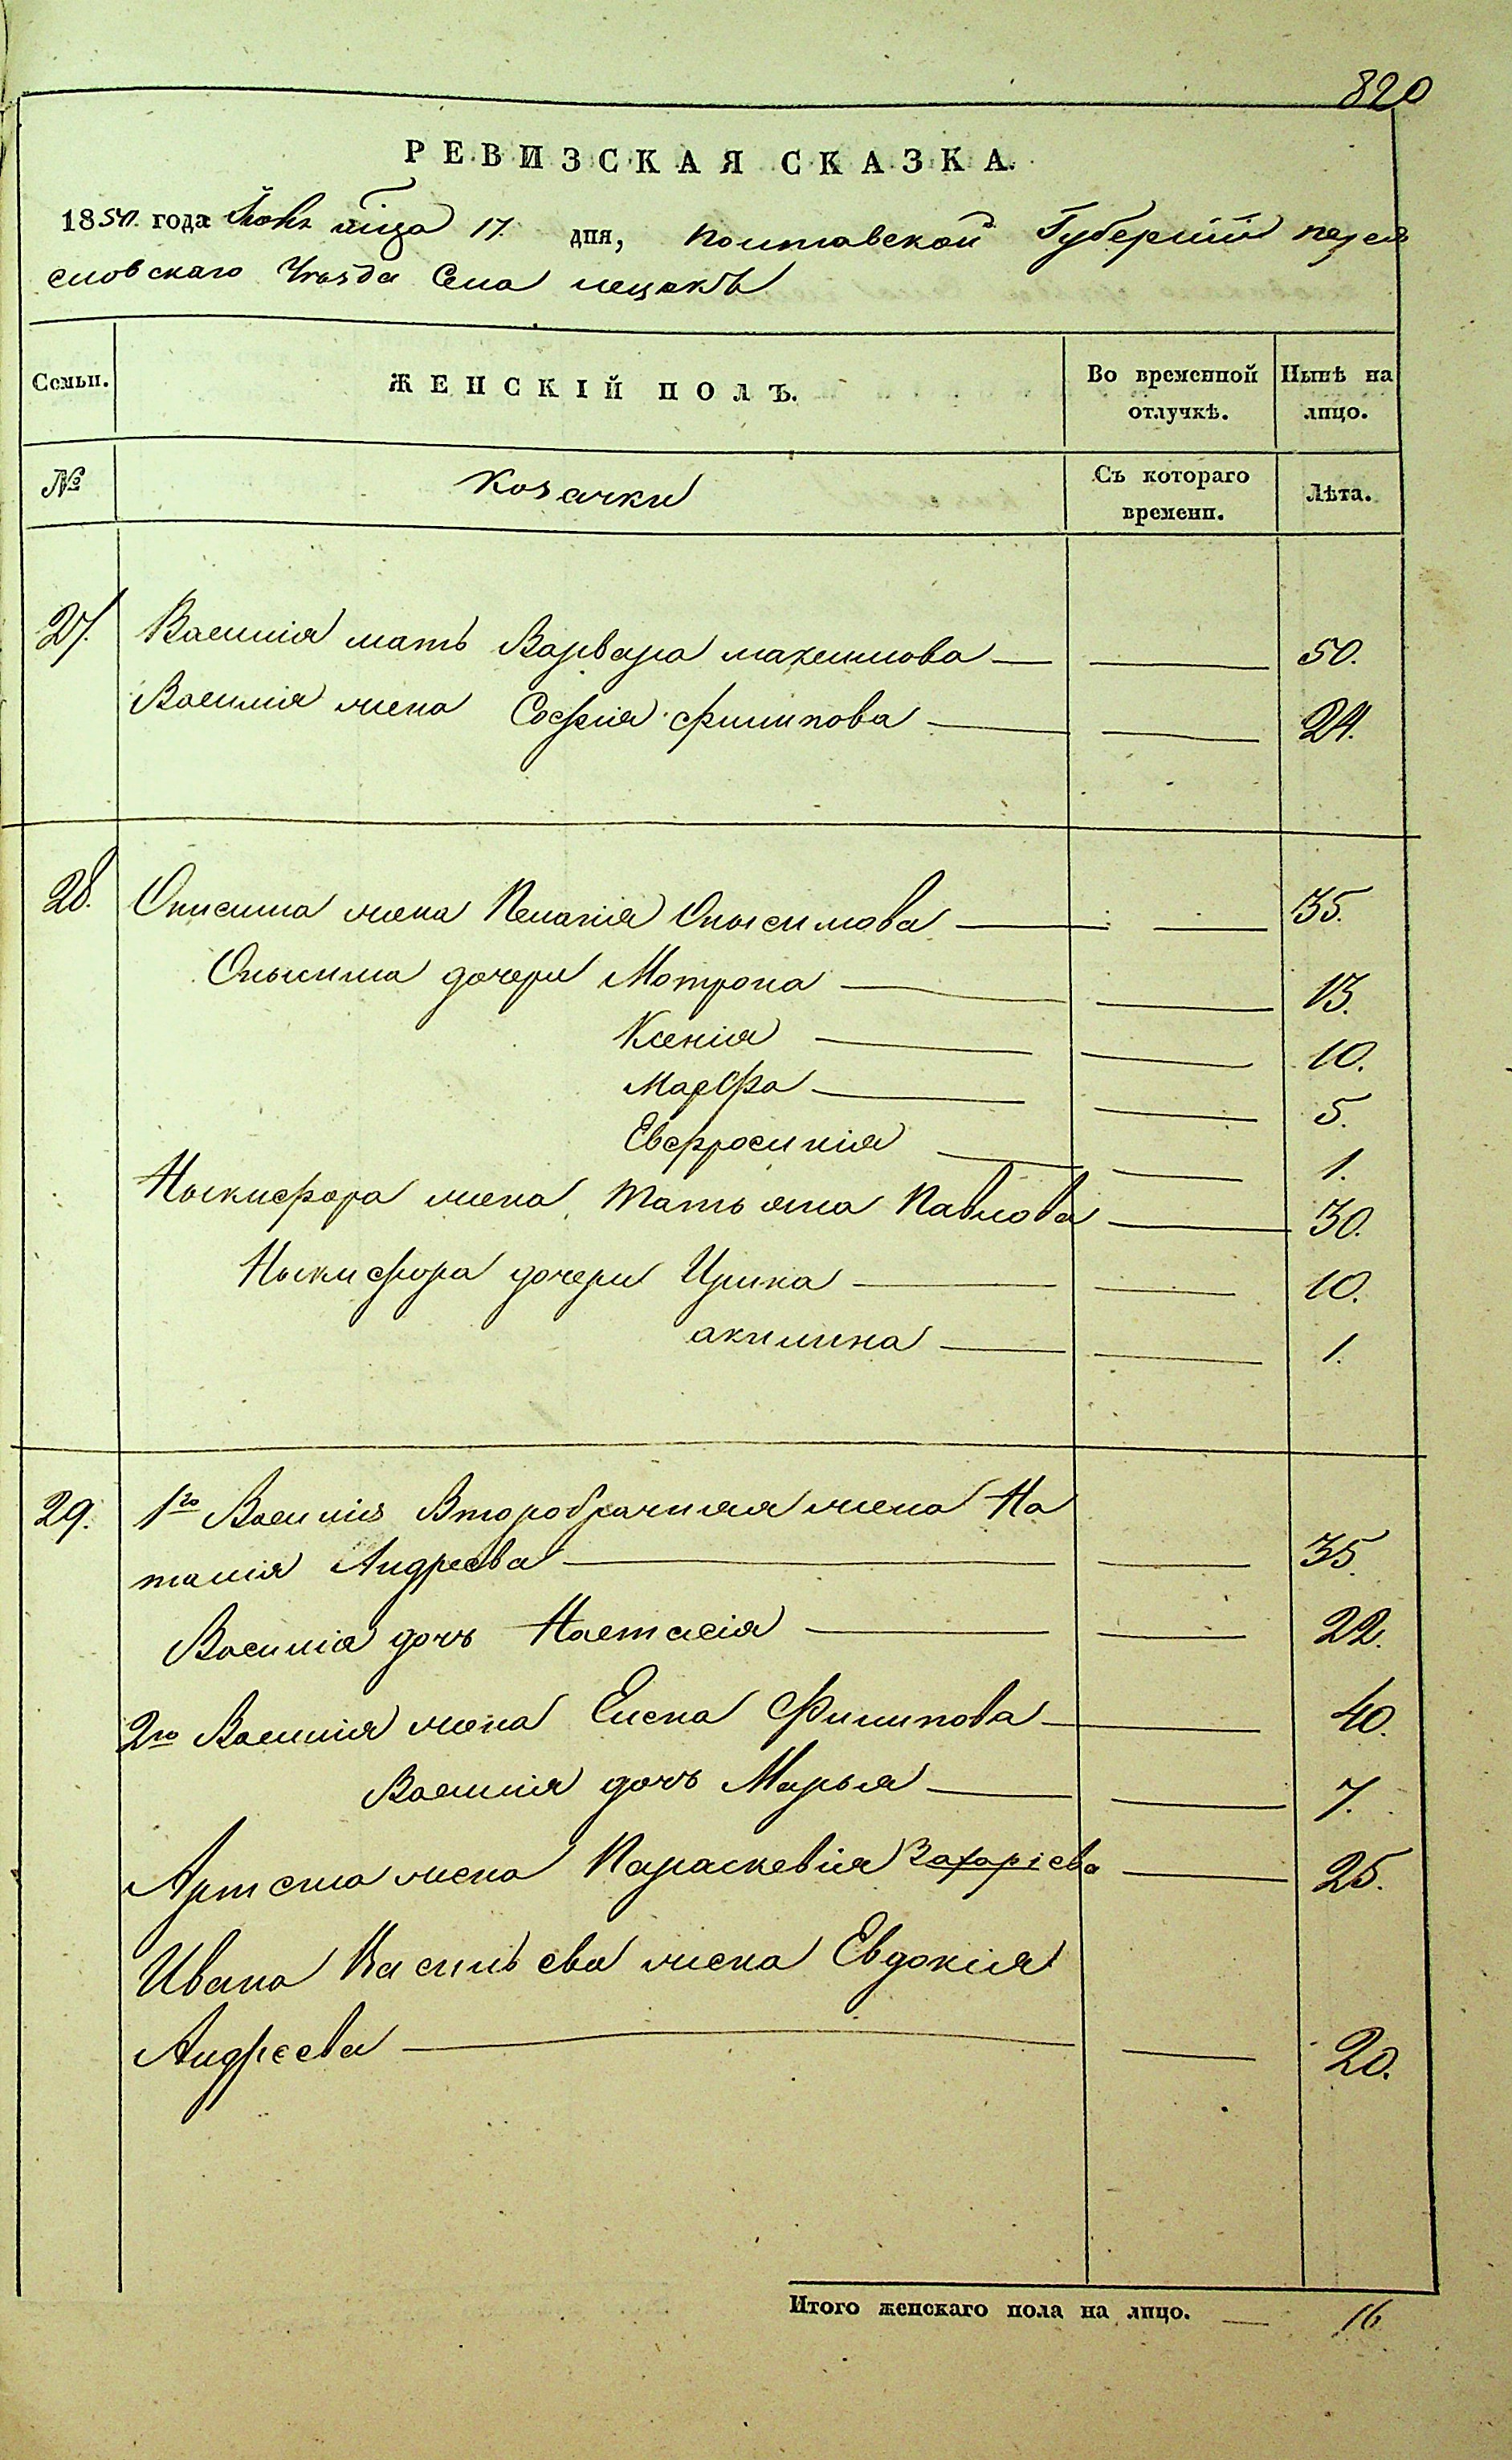 820
РЕВИЗСКАЯ СКАЗКА.
1850. года мца 17. дня, Полтавской Губерніи переяс
словскаго Уезда Села лецокъ
Семьи.
ЖЕНСКІЙ ПОЛЪ.
Во временной
отлучкѣ.
Нынѣ на
лицо.
№
Козачки
Съ котораго
времени.
Лѣта.
27. Василія мать Варвара максимова — — 50.
Василія жена Софія филипова — — 24.
28. Онисима жена Пелагія Онысимова — — 35.
Онысима дочери Мотрона — — 13.
Ксенія — — 10.
Марфа — — 5.
Евфросинія — — 1.
Ныкифора жена Татьяна Павлова — 30.
Ныкифора дочери Ирина — — 10.
акилина — — 1.
29. 1го Василія Второбрачная жена На
талія Андреева — — 35.
Василія дочь Настасія — — 22.
2го Василія жена Елена Филипова — 40.
Василія дочь Марья — — 7.
Артема жена Параскевія Захаріева — 25.
Ивана Васильева жена Евдокія
Андреева — — 20.
Итого женскаго пола на лицо. — 16